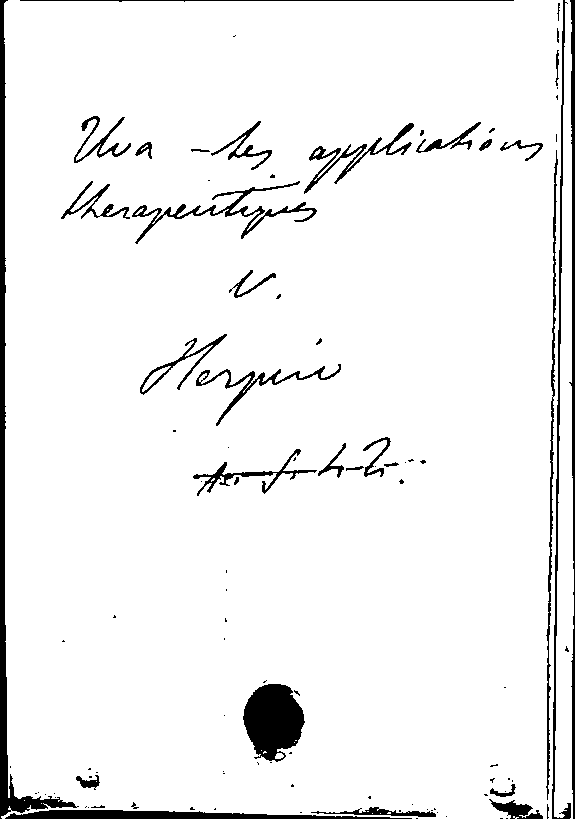 Uva - ses applications
therapeutiques
v.
Herpin